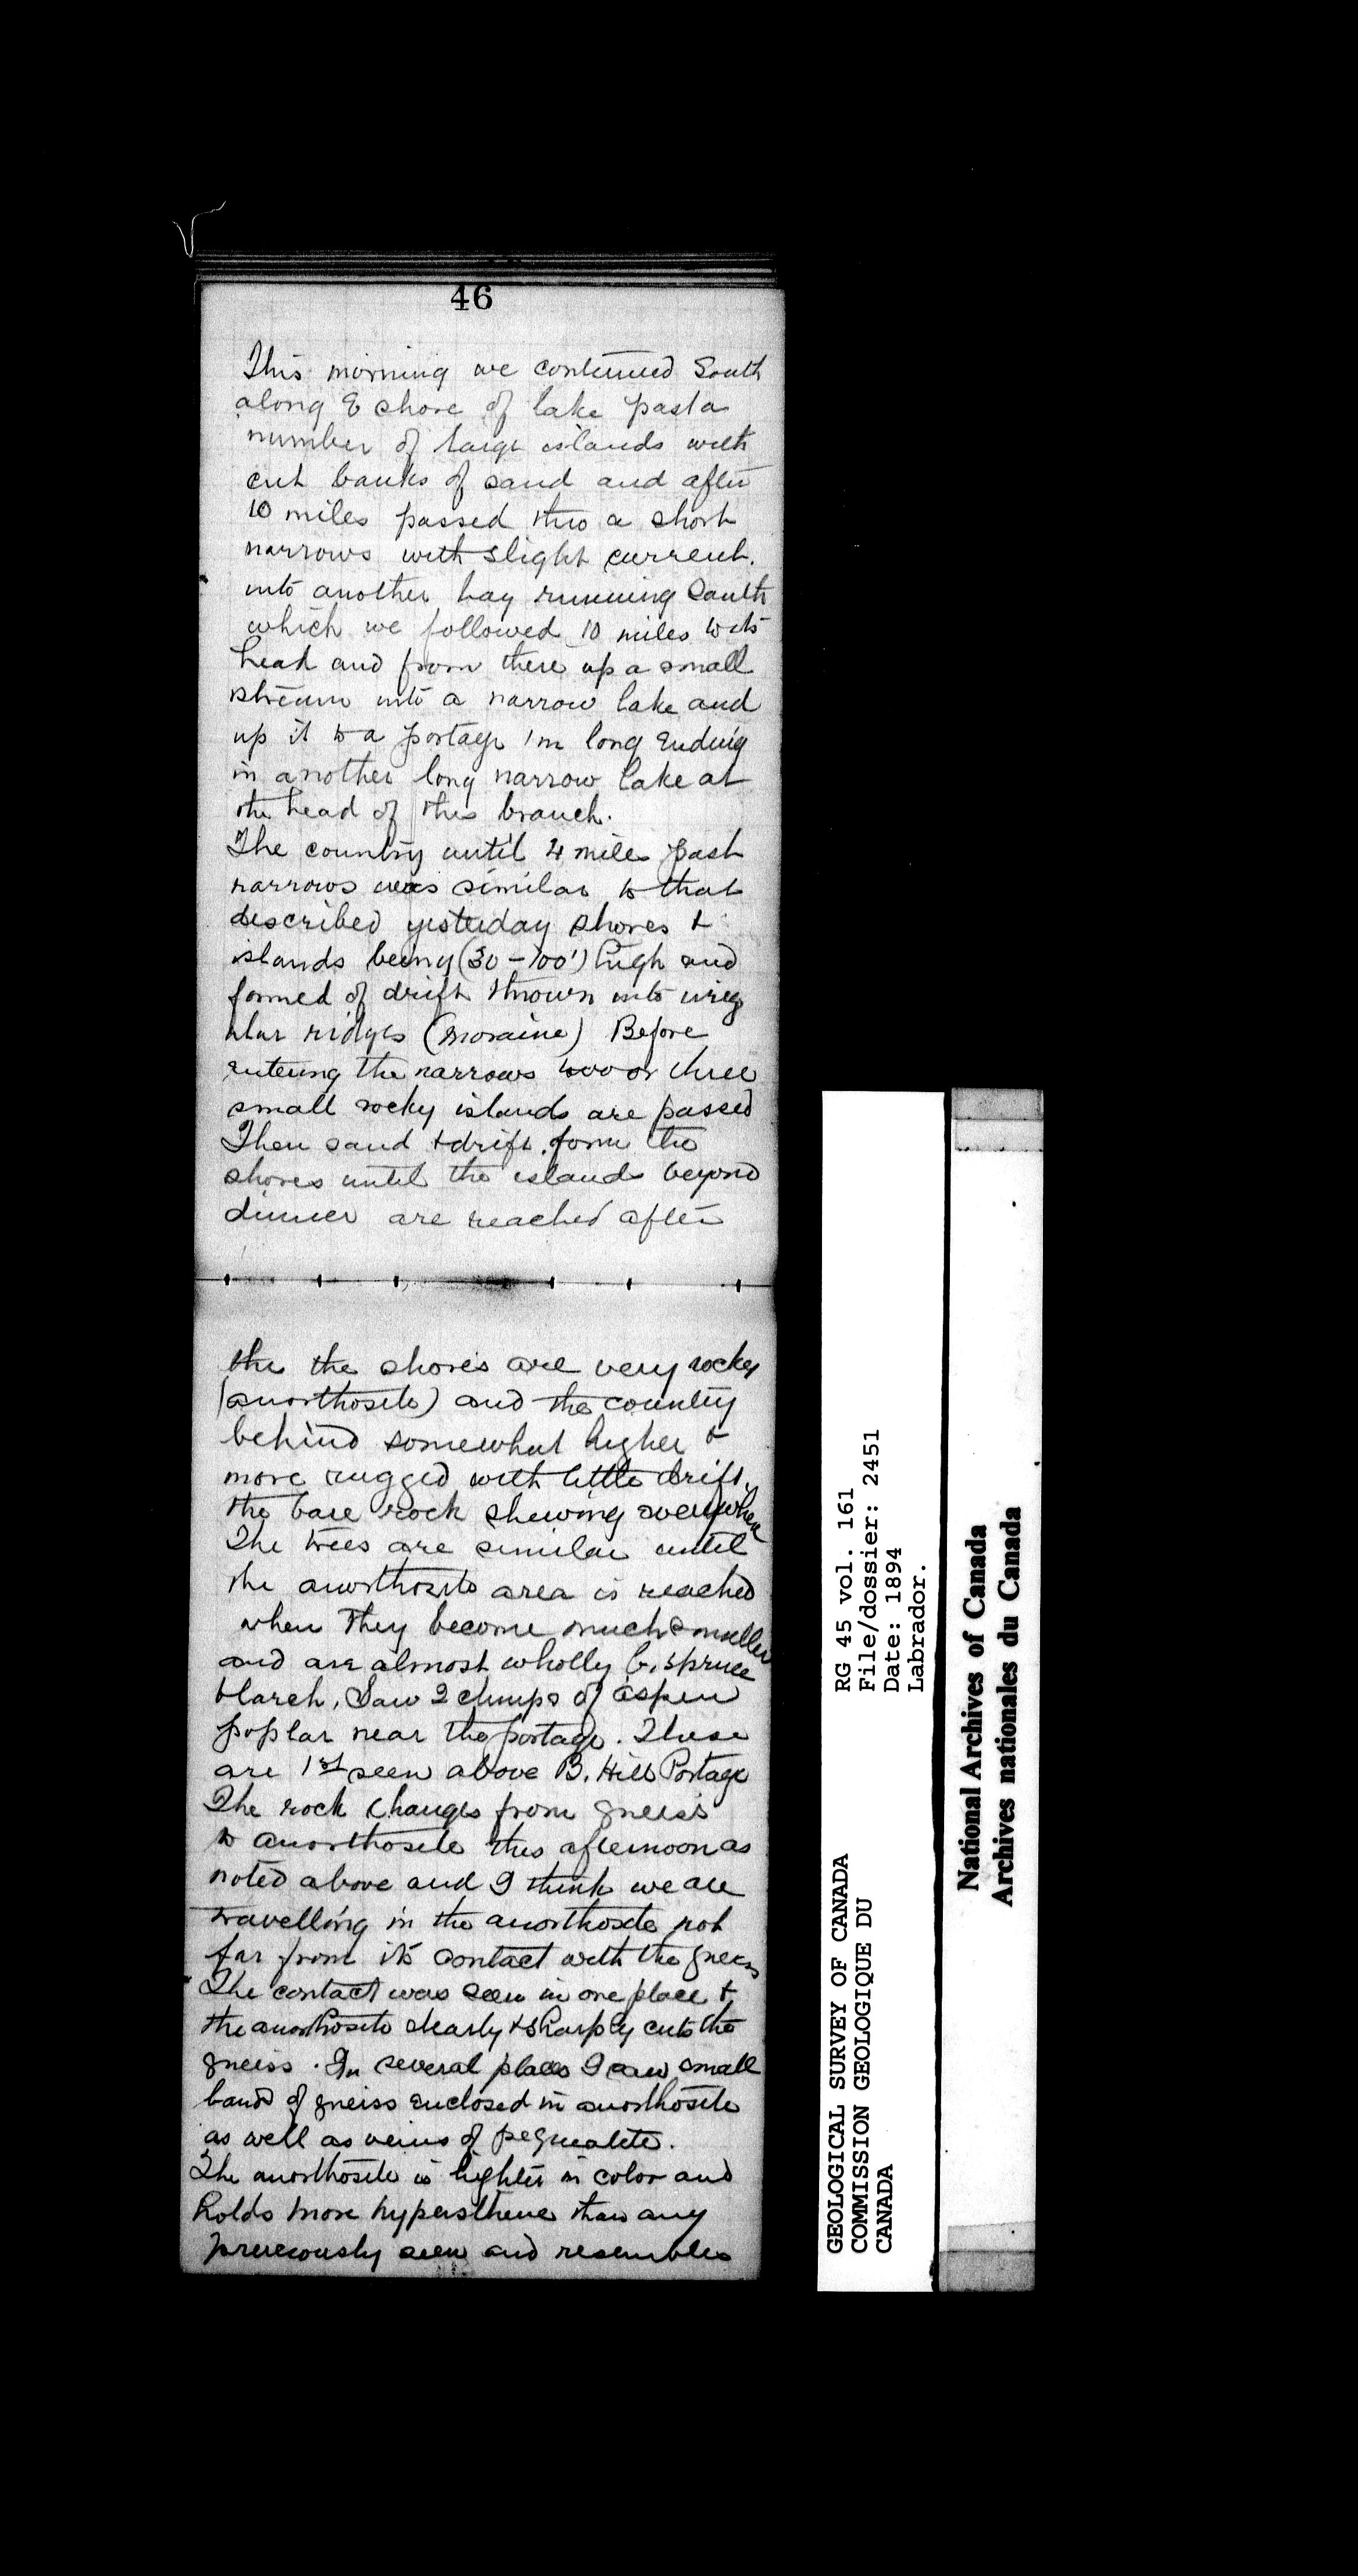 46
This morning we continued South
along E shore of lake past a
number of large islands with
cut banks of sand and after
10 miles passed thro a short
narrows with slight current.
into another bay running South
which we followed 10 miles to its
head and from there up a small
stream into a narrow lake and
up it to a portage 1m long Ending
in another long narrow lake at
the head of this branch.
The country until 4 miles past
narrows was similar to that
described yesterday shores &
islands being (30-100') high and
formed of drift thrown into irreg
ular ridges (moraine) Before
entering the narrows two or three
small rocky islands are passed
Then sand & drift form the
shores until the islands beyond
dinner are reached after
the the shores are very rocky
(anorthosite) and the country
behind somewhat higher &
more rugged with little drift.
the bare rock shewing everywhere
The trees are similar until
the anorthosite area is reached
when they become much smaller
and are almost wholly b. spruce
& larch. Saw 2 clumps of aspen
poplar near the portage. These
are 1st seen above B. Hill Portage
The rock changes from gneiss
to anorthosite this afternoon as
noted above and I think we are
travelling in the anorthosite not
far from its contact with the gneiss
The contact was seen in one place &
the anorthosite clearly & sharply cuts the
gneiss. In several places I saw small
bands of gneiss enclosed in anorthosite
as well as veins of pegmatite.
The anorthosite is lighter in color and
holds more hypersthene than any
previously seen and resembles
RG 45 vol. 161
File/dossier: 2451
Date: 1894
Labrador.
GEOLOGICAL SURVEY OF CANADA
COMMISSION GEOLOGIQUE DU
CANADA
National Archives of Canada
Archives nationales du Canada